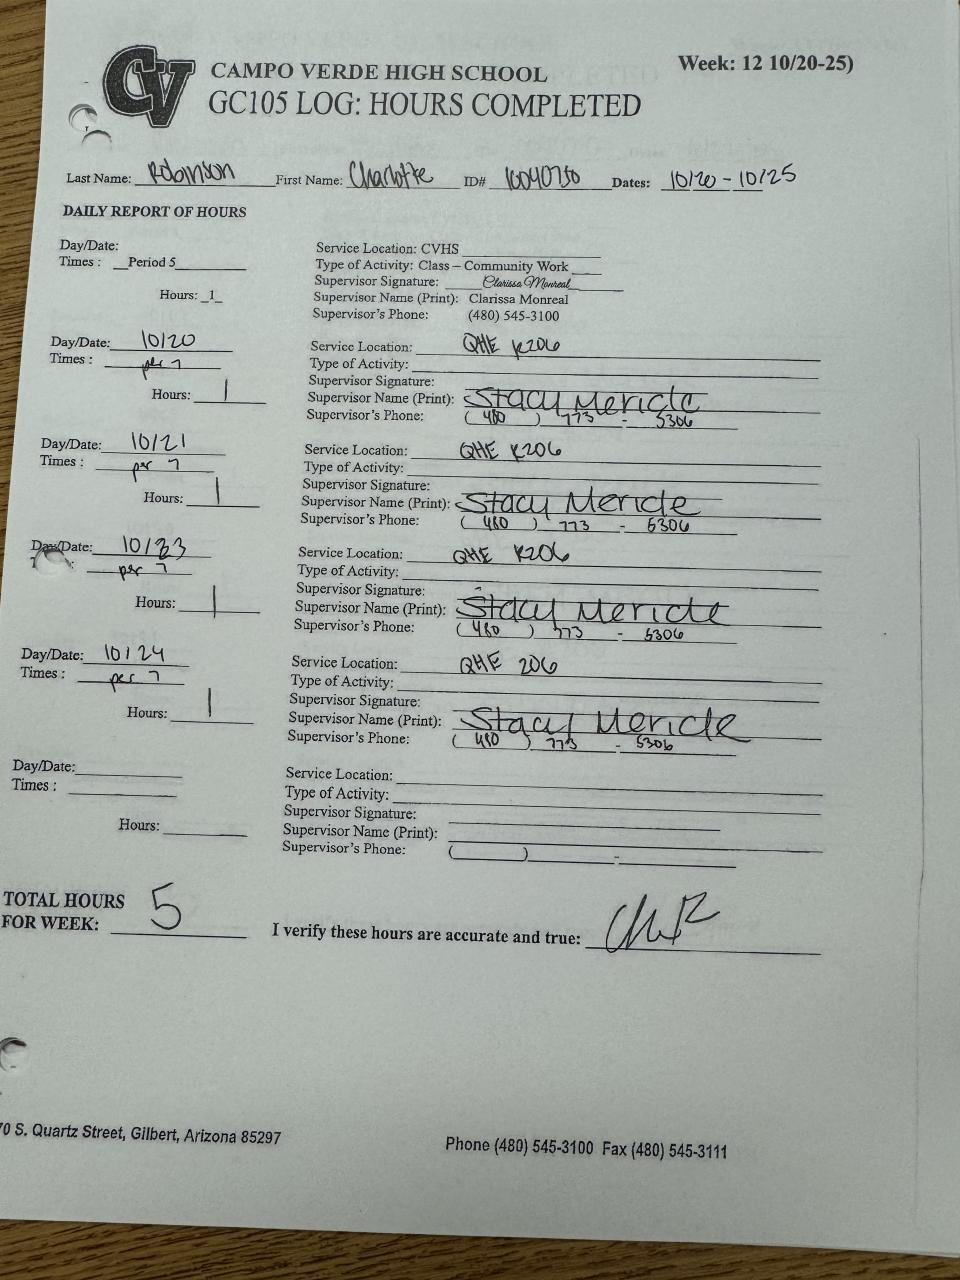 CV
CAMPO VERDE HIGH SCHOOL
Week: 12 10/20-25)
GC105 LOG: HOURS COMPLETED
Last Name: Robinson First Name: Charlotte ID# 10040750 Dates: 10/20 - 10/25
DAILY REPORT OF HOURS
Day/Date:
Times : Period 5
Hours: 1
Service Location: CVHS
Type of Activity: Class – Community Work
Supervisor Signature: Clarissa Monreal
Supervisor Name (Print): Clarissa Monreal
Supervisor's Phone: (480) 545-3100
Day/Date: 10/20
Times : per 7
Hours: 1
Service Location: QHE K206
Type of Activity:
Supervisor Signature:
Supervisor Name (Print): Stacy Mericle
Supervisor's Phone: (480) 773 - 5306
Day/Date: 10/21
Times : per 7
Hours: 1
Service Location: QHE K206
Type of Activity:
Supervisor Signature:
Supervisor Name (Print): Stacy Mericle
Supervisor's Phone: (480) 773 - 5306
Day/Date: 10/23
per 7
Hours: 1
Service Location: QHE K206
Type of Activity:
Supervisor Signature:
Supervisor Name (Print): Stacy Mericle
Supervisor's Phone: (480) 773 - 5306
Day/Date: 10/24
Times : per 7
Hours: 1
Service Location: QHE 206
Type of Activity:
Supervisor Signature:
Supervisor Name (Print): Stacy Mericle
Supervisor's Phone: (480) 773 - 5306
Day/Date:
Times :
Hours:
Service Location:
Type of Activity:
Supervisor Signature:
Supervisor Name (Print):
Supervisor's Phone: ( ) -
TOTAL HOURS
FOR WEEK: 5
I verify these hours are accurate and true:
70 S. Quartz Street, Gilbert, Arizona 85297
Phone (480) 545-3100 Fax (480) 545-3111